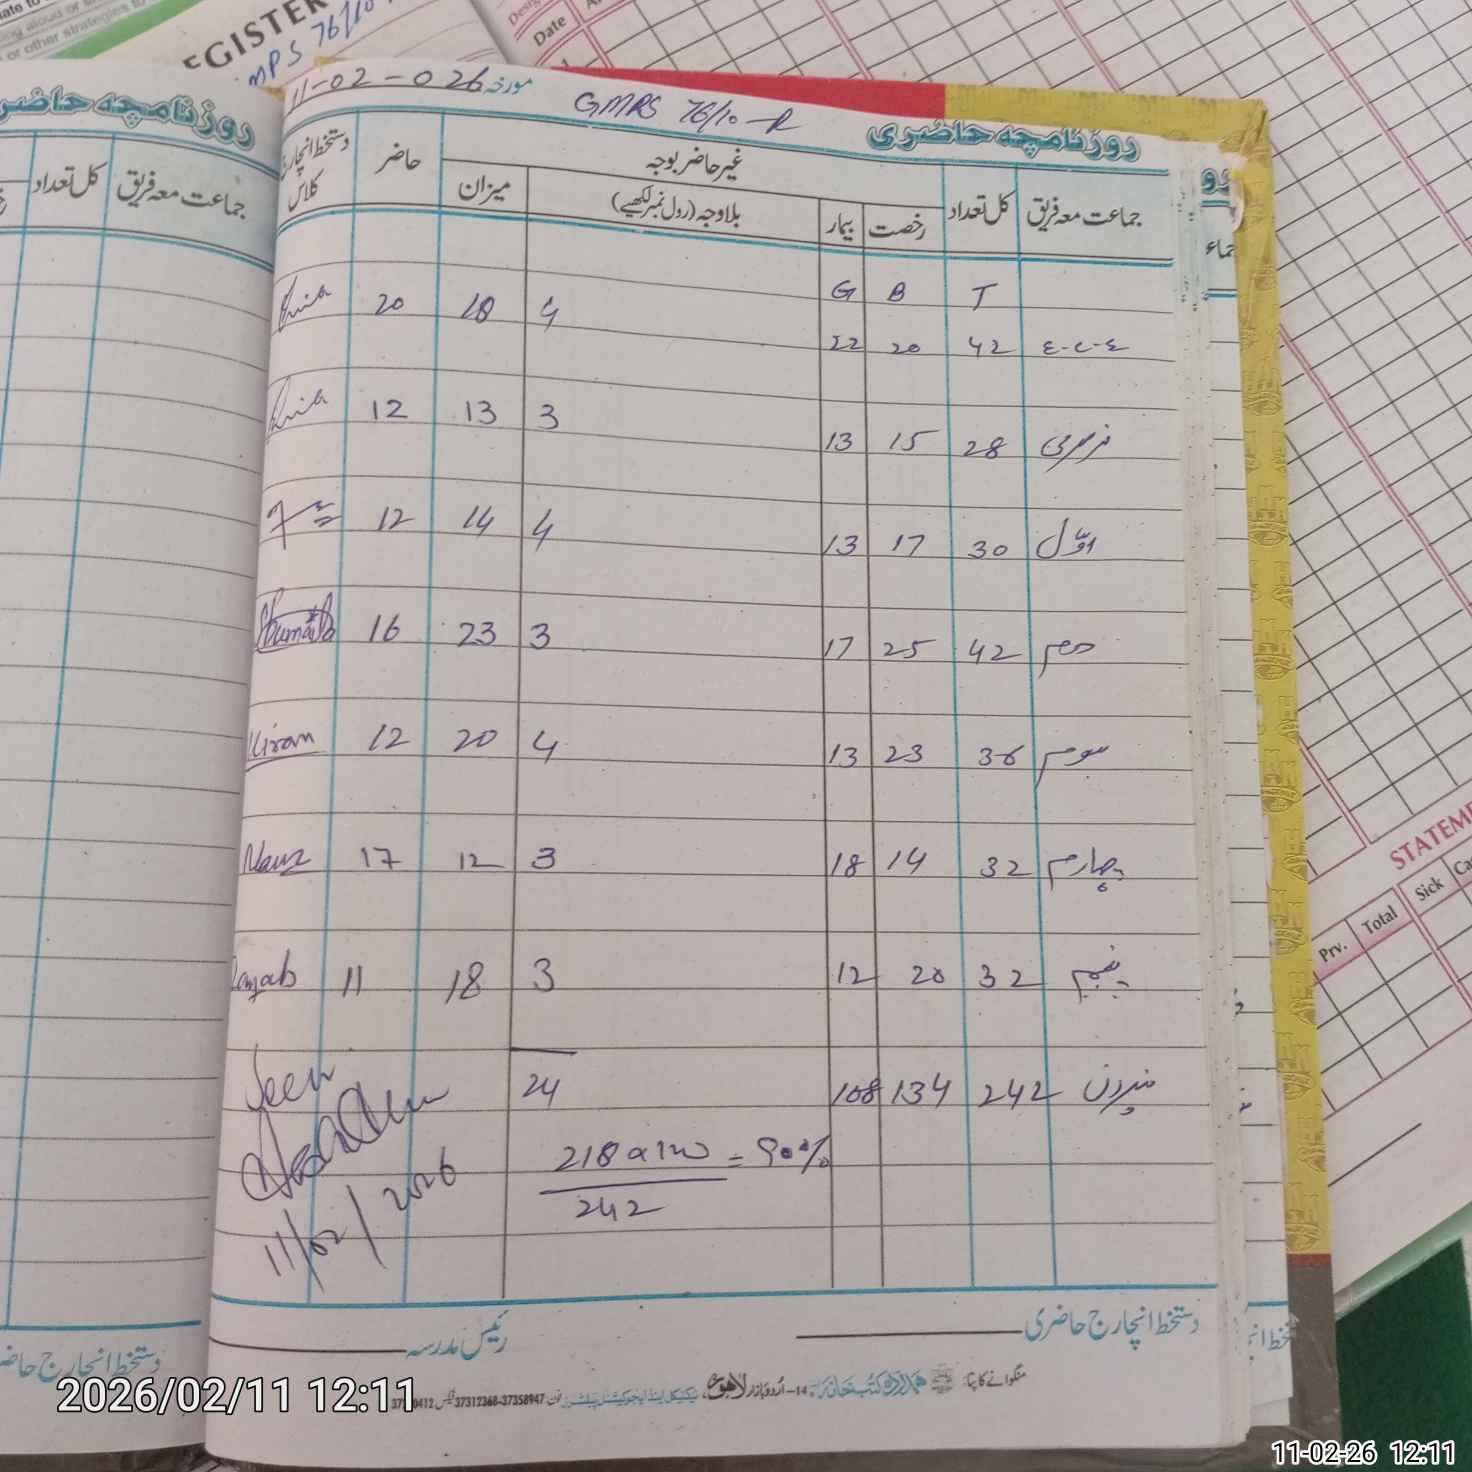 EGISTER
MPS 76/10
Date
11-02-026 مورخہ
GMRS 76/10-R
روزنامچہ حاضری
جماعت معہ فریق
کل تعداد
غیر حاضر بوجہ
رخصت
بیمار
بلاوجہ (رول نمبر لکھیے)
میزان
حاضر
دستخط انچارج کلاس
G B T
20 18 4
22 20 42 ع-ی-ع
12 13 3
13 15 28 نرسری
12 14 4
13 17 30 اوّل
Shumaila 16 23 3
17 25 42 دوم
Kiran 12 20 4
13 23 36 سوم
17 12 3
18 14 32 چہارم
11 18 3
12 20 32 پنجم
24 108 134 242 میزان
Seen
11/02/2026
218
242
= 90%
رئیس مدرسہ
دستخط انچارج حاضری
منگوانے کا پتا: ہمدرد کتب خانہ 14-اُردو بازار لاہور
فون 37358947-37312368 فیکس
روزنامچہ حاضری
جماعت معہ فریق
کل تعداد
دستخط انچارج
STATEME
Prv. Total Sick
2026/02/11 12:11
11-02-26 12:11